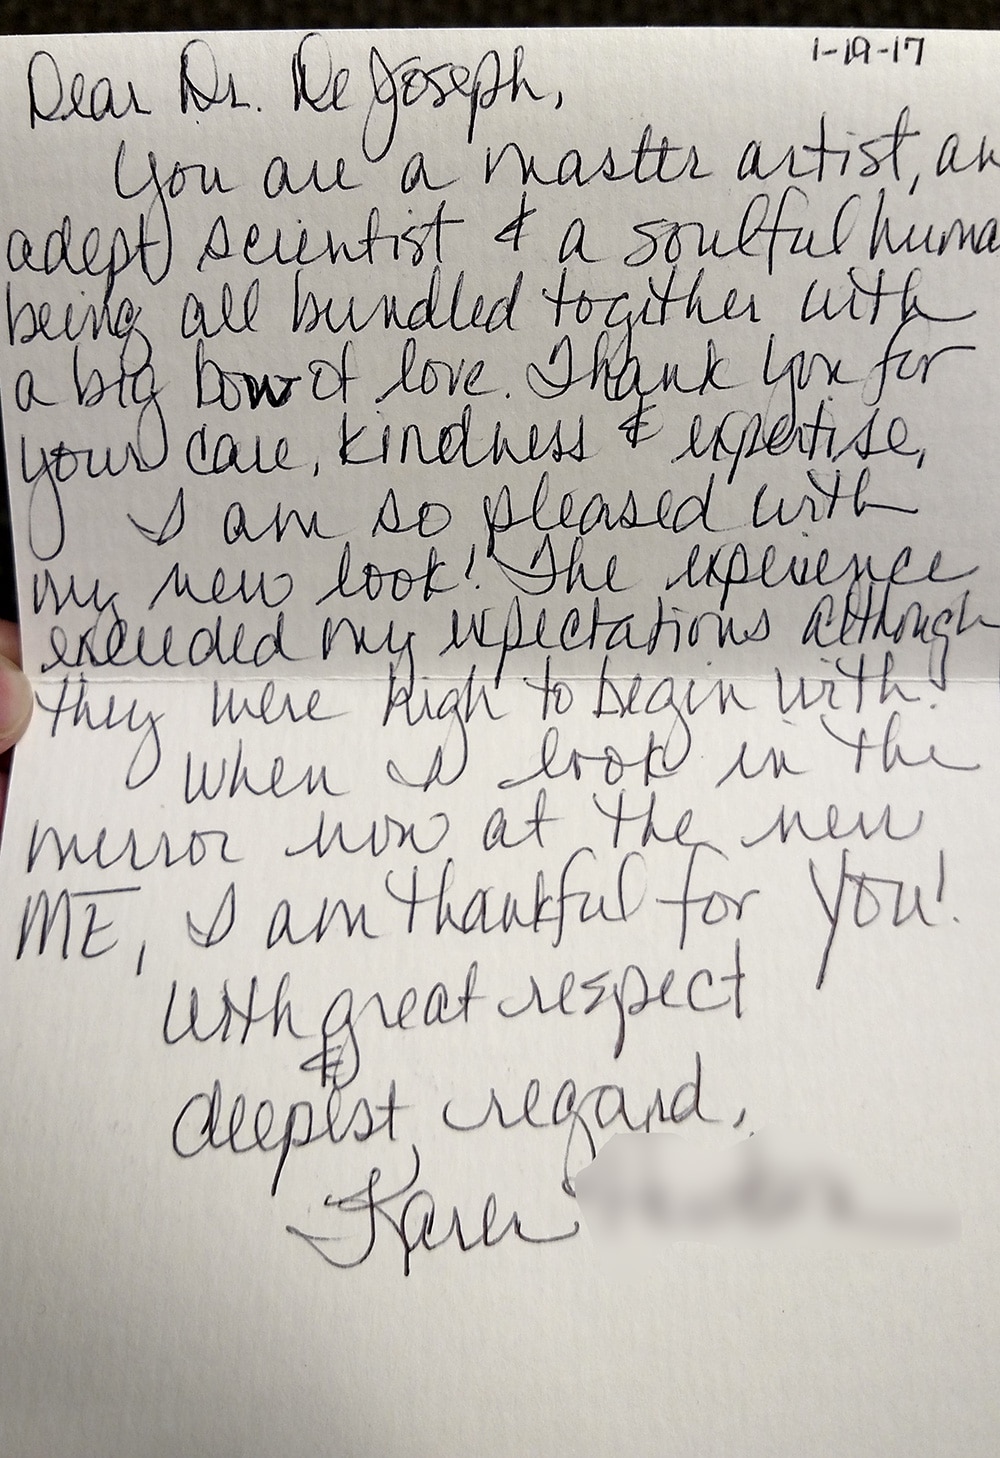 1-19-17
Dear Dr. DeJoseph,
You are a master artist, an
adept scientist & a soulful huma
being all bundled together with
a big bow of love. Thank you for
your care, kindness & expertise,
I am so pleased with
my new look! The experience
exceeded my expectations although
they were high to begin with!
When I look in the
mirror now at the new
ME, I am thankful for YOU!
With great respect
&
deepest regard,
Karen